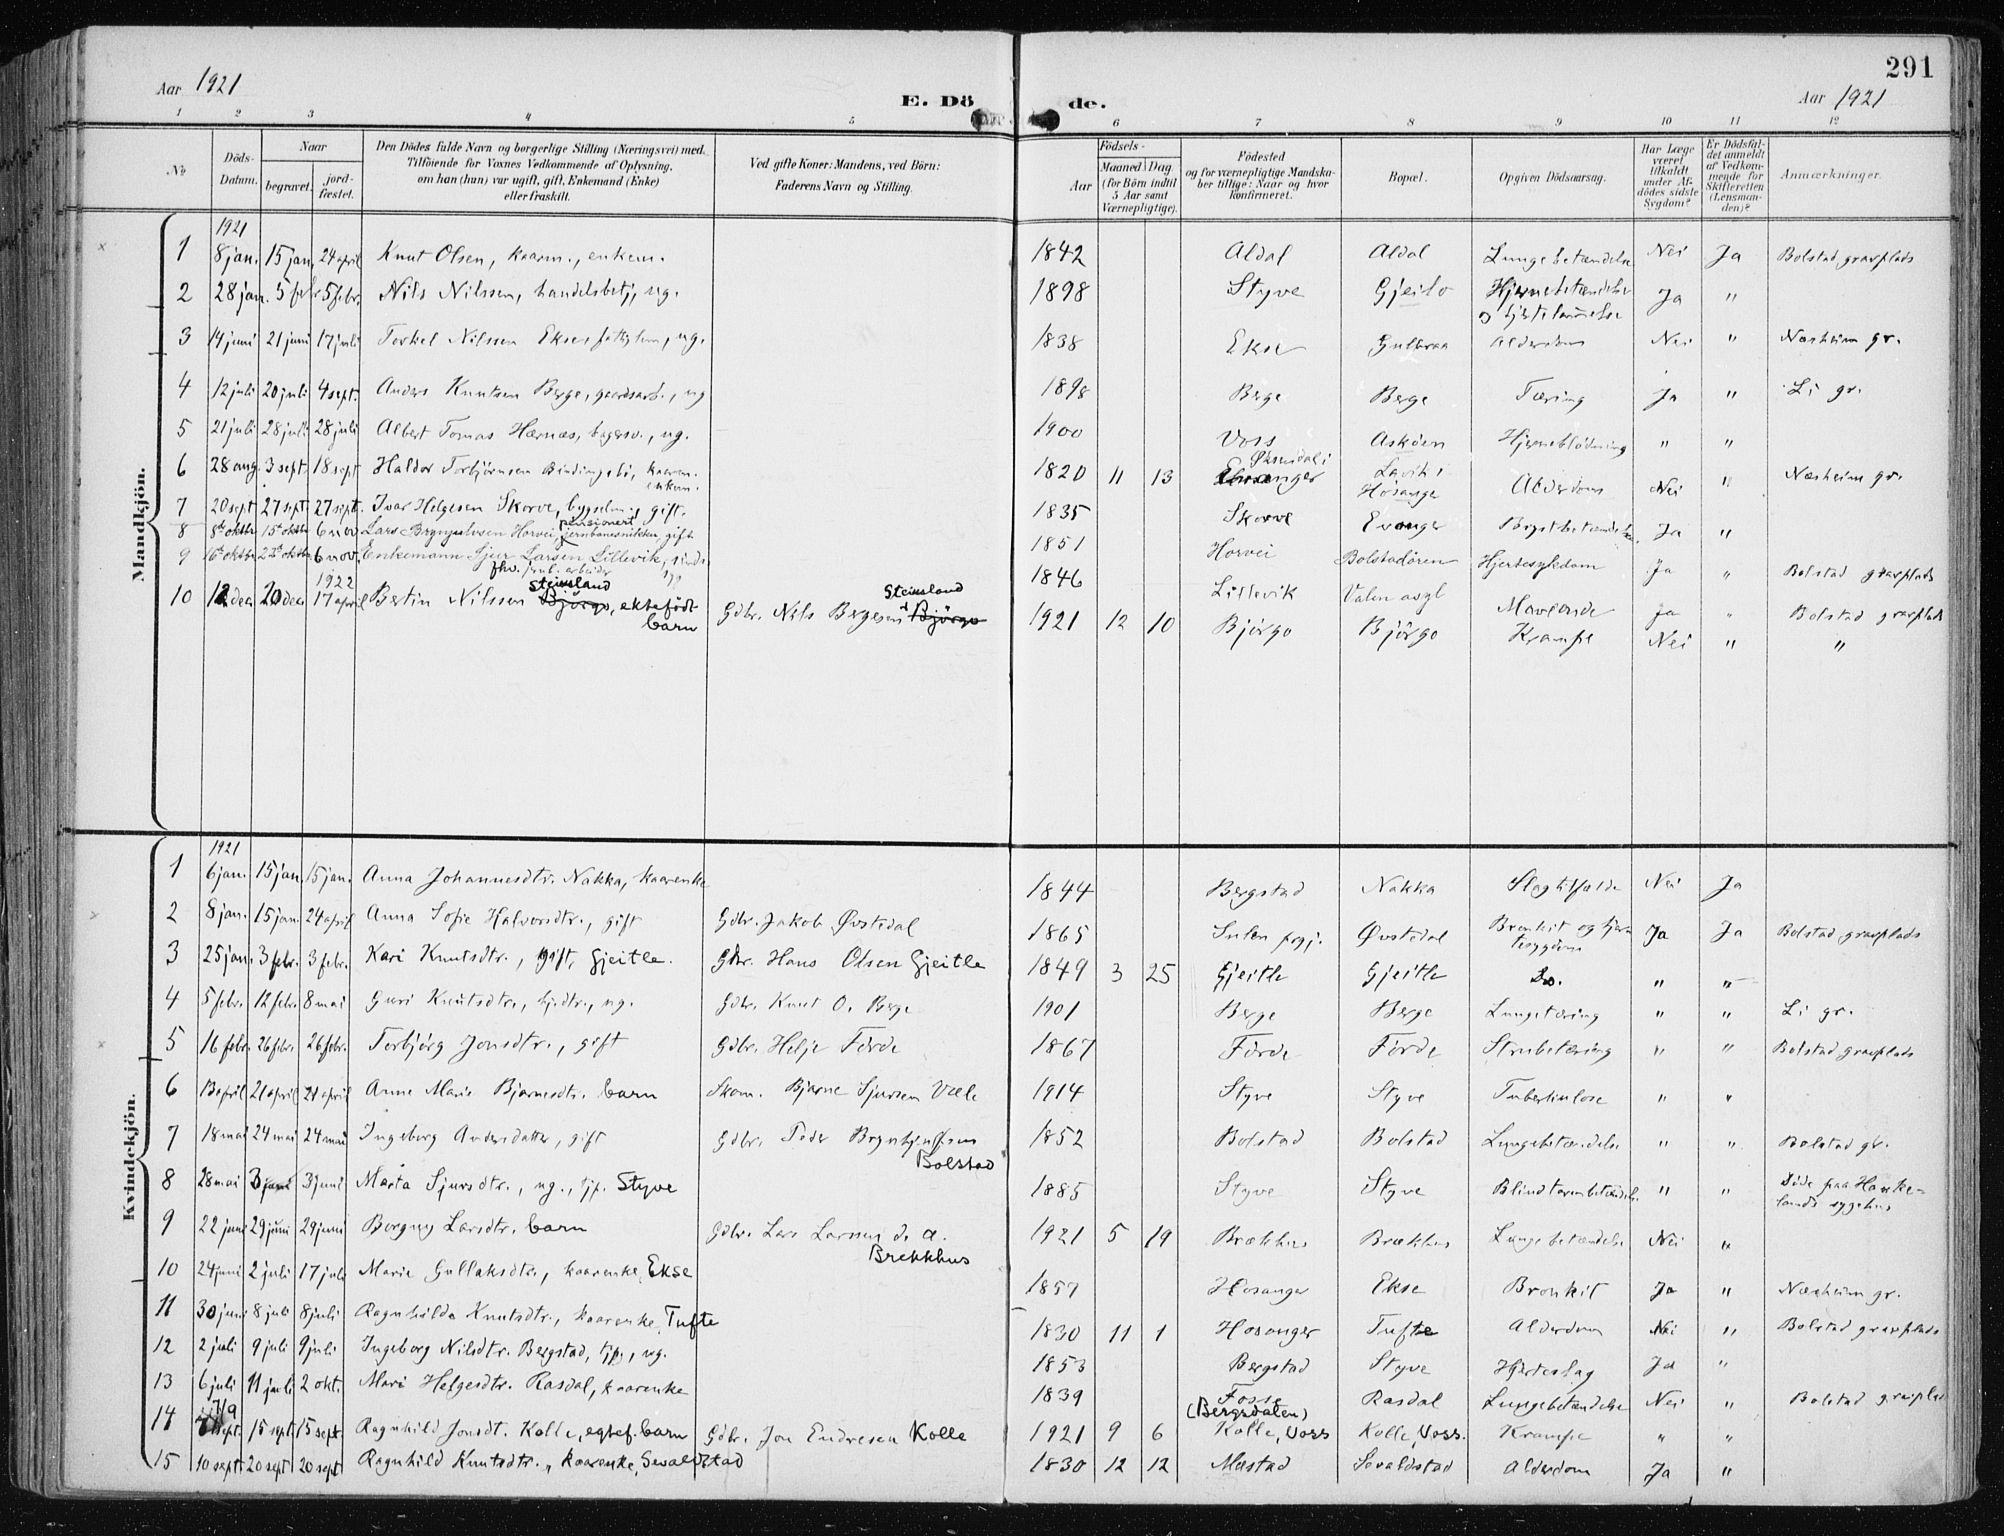 291
Aar 1921
E. Dö
de.
Aar 1921
1 2 3 4 5 6 7 8 9 10 11 12
No
Döds-
Datum.
Naar
begravet.
jord-
fæstet.
Den Dödes fulde Navn og borgerlige Stilling (Næringsvei) med
Tilföiende for Voxnes Vedkommende af Oplysning,
om han (hun) var ugift, gift, Enkemand (Enke)
eller fraskilt.
Ved gifte Koner: Mandens, ved Börn:
Faderens Navn og Stilling.
Födsels-
Aar
Maaned Dag
(for Börn indtil
5 Aar samt
Værnepligtige).
Födested
og for værnepligtige Mandska-
ber tillige: Naar og hvor
konfirmeret.
Bopæl.
Opgiven Dödsaarsag.
Har Læge
været
tilkaldt
under Af-
dödes sidste
Sygdom?
Er Dödsfal-
det anmeldt
af Vedkom-
mende for
Skifteretten
(Lensman-
den)?
Anmærkninger.
Mandkjön.
1921
1 8 jan. 15 jan. 24 april Knut Olsen, kaarm., enkem. 1842 Aldal Aldal Lungebetændelse Nei Ja Bolstad gravplads
2 28 jan. 5 febr. 5 febr. Nils Nilssen, handelsbetj., ug. 1898 Styve Gjeilo Hjernebetændelse Ja "
3 14 juni 21 juni 17 juli Torkel Nilssen Ekse, ug. 1838 Ekse Gulbraa Alderdom Nei " Næsheim gr.
4 12 juli 20 juli 4 sept. Anders Knutsen Berge, gaardsarb., ug 1898 Berge Berge Tæring Ja " Li gr.
5 21 juli 28 juli 28 juli Albert Tomas Hærnæs, bagersv., ug. 1900 Voss Asköen Hjerneblödning " "
6 28 aug. 3 sept. 18 sept Haldor Torbjörnsen Bindingsbö, kaarm.
enkem. 1820 11 13 Øksendal i Lavik i
Hosange Alderdom Nei " Næsheim gr.
7 20 sept 27 sept 27 sept. Ivar Helgesen Skorve, bygselm., gift. 1835 Skorve Evanger Brystbetændelse Ja "
8 8de oktbr 15de oktbr 6 nov. Lars Brynjulvsen Horvei, pensionert jernbanesnikker, gift 1851 Horvei Bolstadören Hjertesykdom Ja " Bolstad gravplads
9 16de oktbr. 22de oktbr. 6 nov. Enkemann Sjur Larsen Lillevik,
fhv. jernb. arbeider 1846 Lillevik Valen asyl Ja " Bolstad gravplads
1922
10 12 dec 20 dec 17 april Bertin Nilssen Steinsland Björgo, ektefödt
barn Gdbr. Nils Bergesen Steinsland Björgo 1921 12 10 Björgo Björgo Krampe Nei " "
Kvindekjön.
1921
1 6 jan. 15 jan. 15 jan. Anna Johannesdtr. Nakka, kaarenke 1844 Bergstad Nakka Slagtilfælde Nei Ja
2 8 jan. 15 jan. 24 april Anna Sofie Halvorsdtr., gift Gdbr. Jakob Øvstedal 1865 Sulen prgj. Øvstedal Bronkit og hjer-
tesygdom Ja Ja Bolstad gravplads
3 25 jan. 3 febr. 3 febr. Kari Knutsdtr., gift, Gjeitle. Gdbr. Hans Olsen Gjeitle 1849 3 25 Gjeitle Gjeitle Do. " "
4 5 febr. 12 febr. 8 mai Guri Knutsdtr., hjdtr., ug. Gdbr. Knut O. Berge 1901 Berge Berge Lungetæring " " Li gr.
5 16 febr. 26 febr. 26 febr. Torbjörg Jonsdtr., gift Gdbr. Helje Förde 1867 Förde Förde Strubetæring " " Bolstad gravplads
6 13 april 21 april 21 april Anne Marie Bjarnesdtr. barn Skom. Bjarne Sjursen Væle 1914 Styve Styve Tuberkulose " "
7 18 mai 24 mai 24 mai Ingeborg Andersdatter, gift Gdbr. Peder Brynhjulfsen
Bolstad 1852 Bolstad Bolstad Lungebetændelse " " Bolstad gr.
8 28 mai 3 juni 3 juni Marta Sjursdtr., ug., tjp. Styve 1885 Styve Styve Blindtarmbetændelse " " Döde paa Hauke-
lands sygehus
9 22 juni 29 juni 29 juni Borgny Larsdtr. barn Gdbr. Lars Larsen d. a.
Brekkhus 1921 5 19 Brækkhus Brækkhus Lungebetændelse Nei "
10 24 juni 2 juli 17 juli Marie Gullaksdtr., kaarenke, Ekse 1857 Hosanger Ekse Bronkit Ja " Næsheim gr.
11 30 juni 8 juli 8 juli Ragnhilda Knutsdtr., kaarenke, Tufte 1830 11 1 Hosanger Tufte Alderdom Nei " Bolstad gravplads
12 2 juli 9 juli 9 juli Ingeborg Nilsdtr. Bergstad, tjp., ug. 1853 Bergstad Styve Hjerteslag Ja "
13 6 juli 11 juli 2 okt. Mari Helgesdtr. Rasdal, kaarenke 1839 Fosse
(Bergsdalen) Rasdal Lungebetændelse Nei " Bolstad gravplads
14 7/9 sept. 15 sept. 15 sept. Ragnhild Jonsdt. Kolle, egtef. barn Gdbr. Jon Endresen Kolle 1921 9 6 Kolle, Voss Kolle, Voss. Krampe " "
15 10 sept. 20 sept 20 sept Ragnhild Knutsdtr., kaarenke, Sevaldstad 1830 12 12 Mestad Sevaldstad Alderdom Ja "